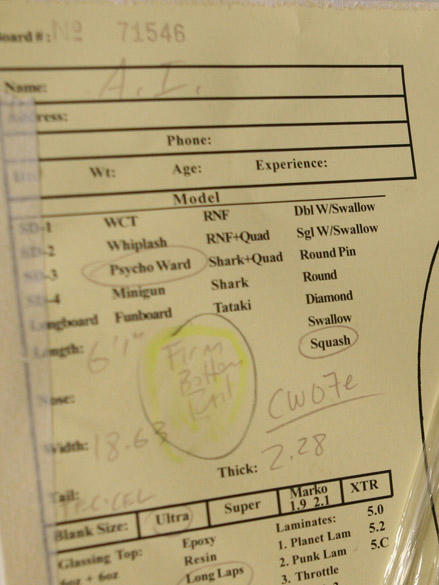 Board #: Nº 71546
Name: A.I.
Address:
Phone:
Wt: Age: Experience:
Model
SD-1 WCT RNF Dbl W/Swallow
SD-2 Whiplash RNF+Quad Sgl W/Swallow
SD-3 Psycho Ward Shark+Quad Round Pin
SD-4 Minigun Shark Round
Longboard Funboard Tataki Diamond
Swallow
Length: 6'1" Squash
Firm
Bottom
Nose: CW07e
Width: 18.63
Thick: 2.28
Tail:
Blank Size: Ultra Super Marko 1.9 2.1 XTR
Glassing Top: Epoxy Laminates: 5.0
6oz + 6oz Resin 1. Planet Lam 5.2
Long Laps 2. Punk Lam 5.C
3. Throttle